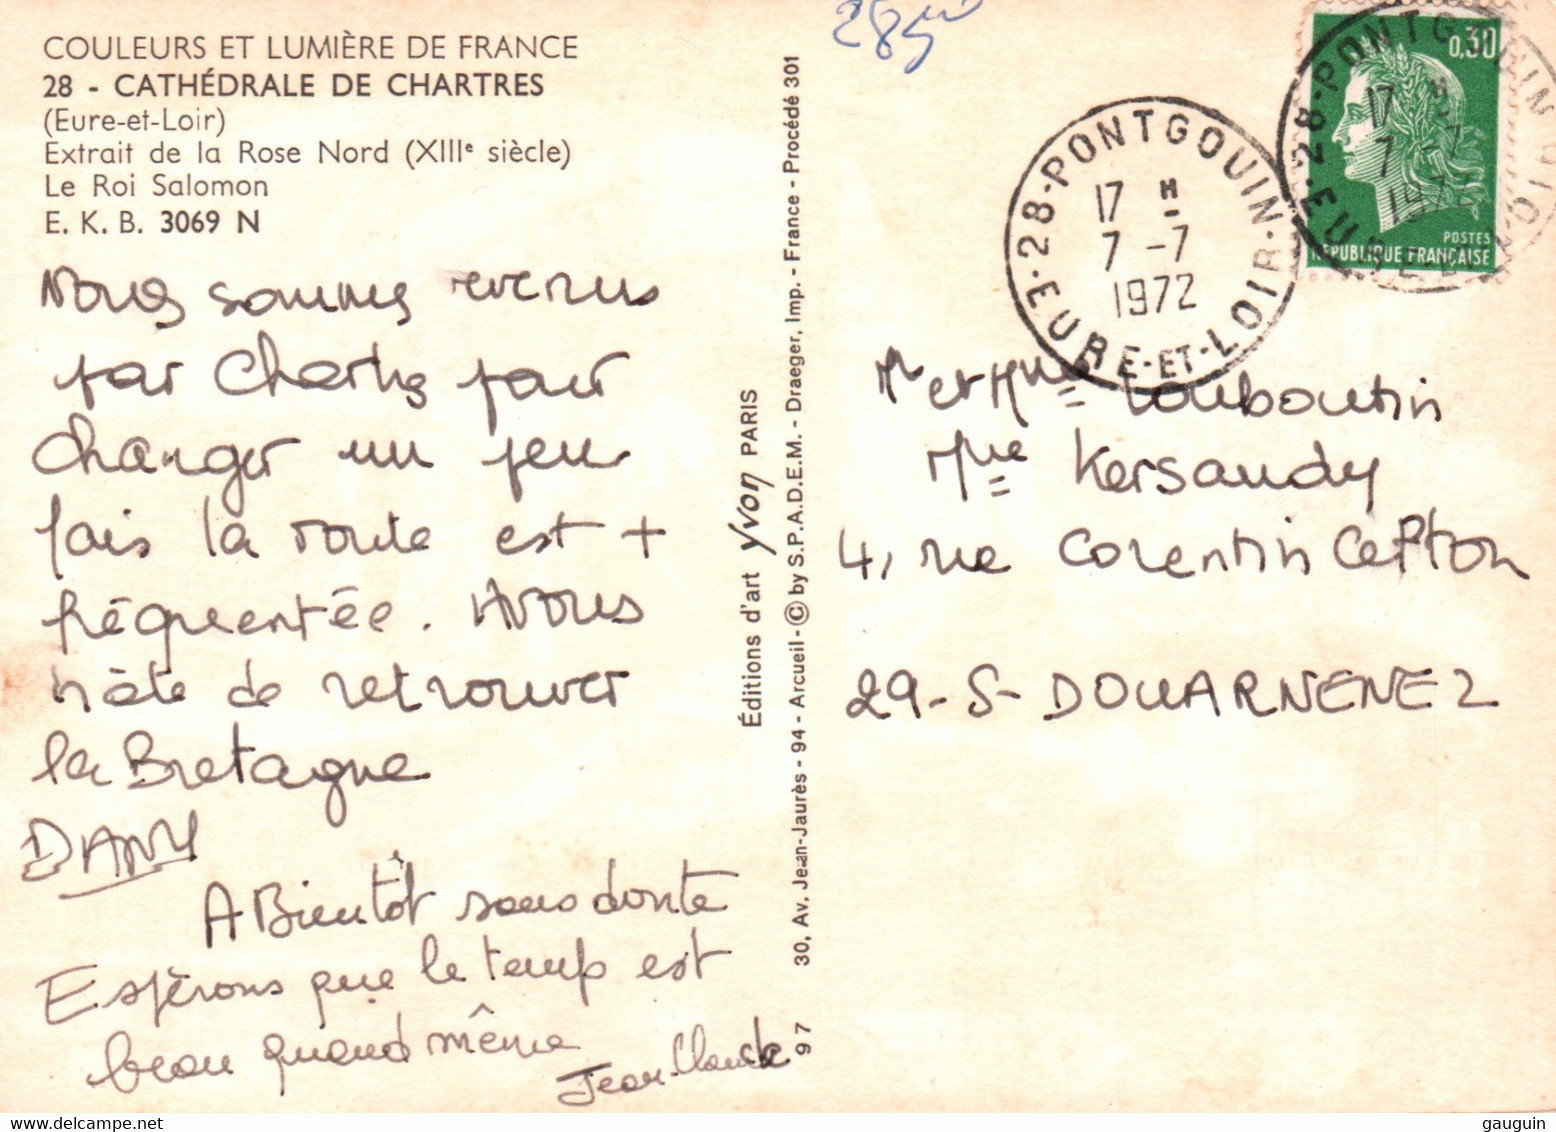 COULEURS ET LUMIÈRE DE FRANCE
28 - CATHÉDRALE DE CHARTRES
(Eure-et-Loir)
Extrait de la Rose Nord (XIIIe siècle)
Le Roi Salomon
E. K. B. 3069 N
Nous sommes revenus
par Chartres pour
changer un peu
mais la route est +
fréquentée. Avons
hâte de retrouver
la Bretagne
DANY
A Bientôt sans doute
Espérons que le temps est
beau quand même
Jean-Claude
Éditions d'art Yvon PARIS
97 30, Av. Jean-Jaurès - 94 - Arcueil - © by S.P.A.D.E.M. - Draeger, Imp. - France - Procédé 301
28-PONTGOUIN
17 H
7 -7
1972
EURE-ET-LOIR
28-PONTGOUIN
17 H
7 -7
1972
0,30
POSTES
REPUBLIQUE FRANÇAISE
Mr et Mme Louboutin
Mme Kersaudy
4, rue Corentin Celton
29-S- DOUARNENEZ
gauguin